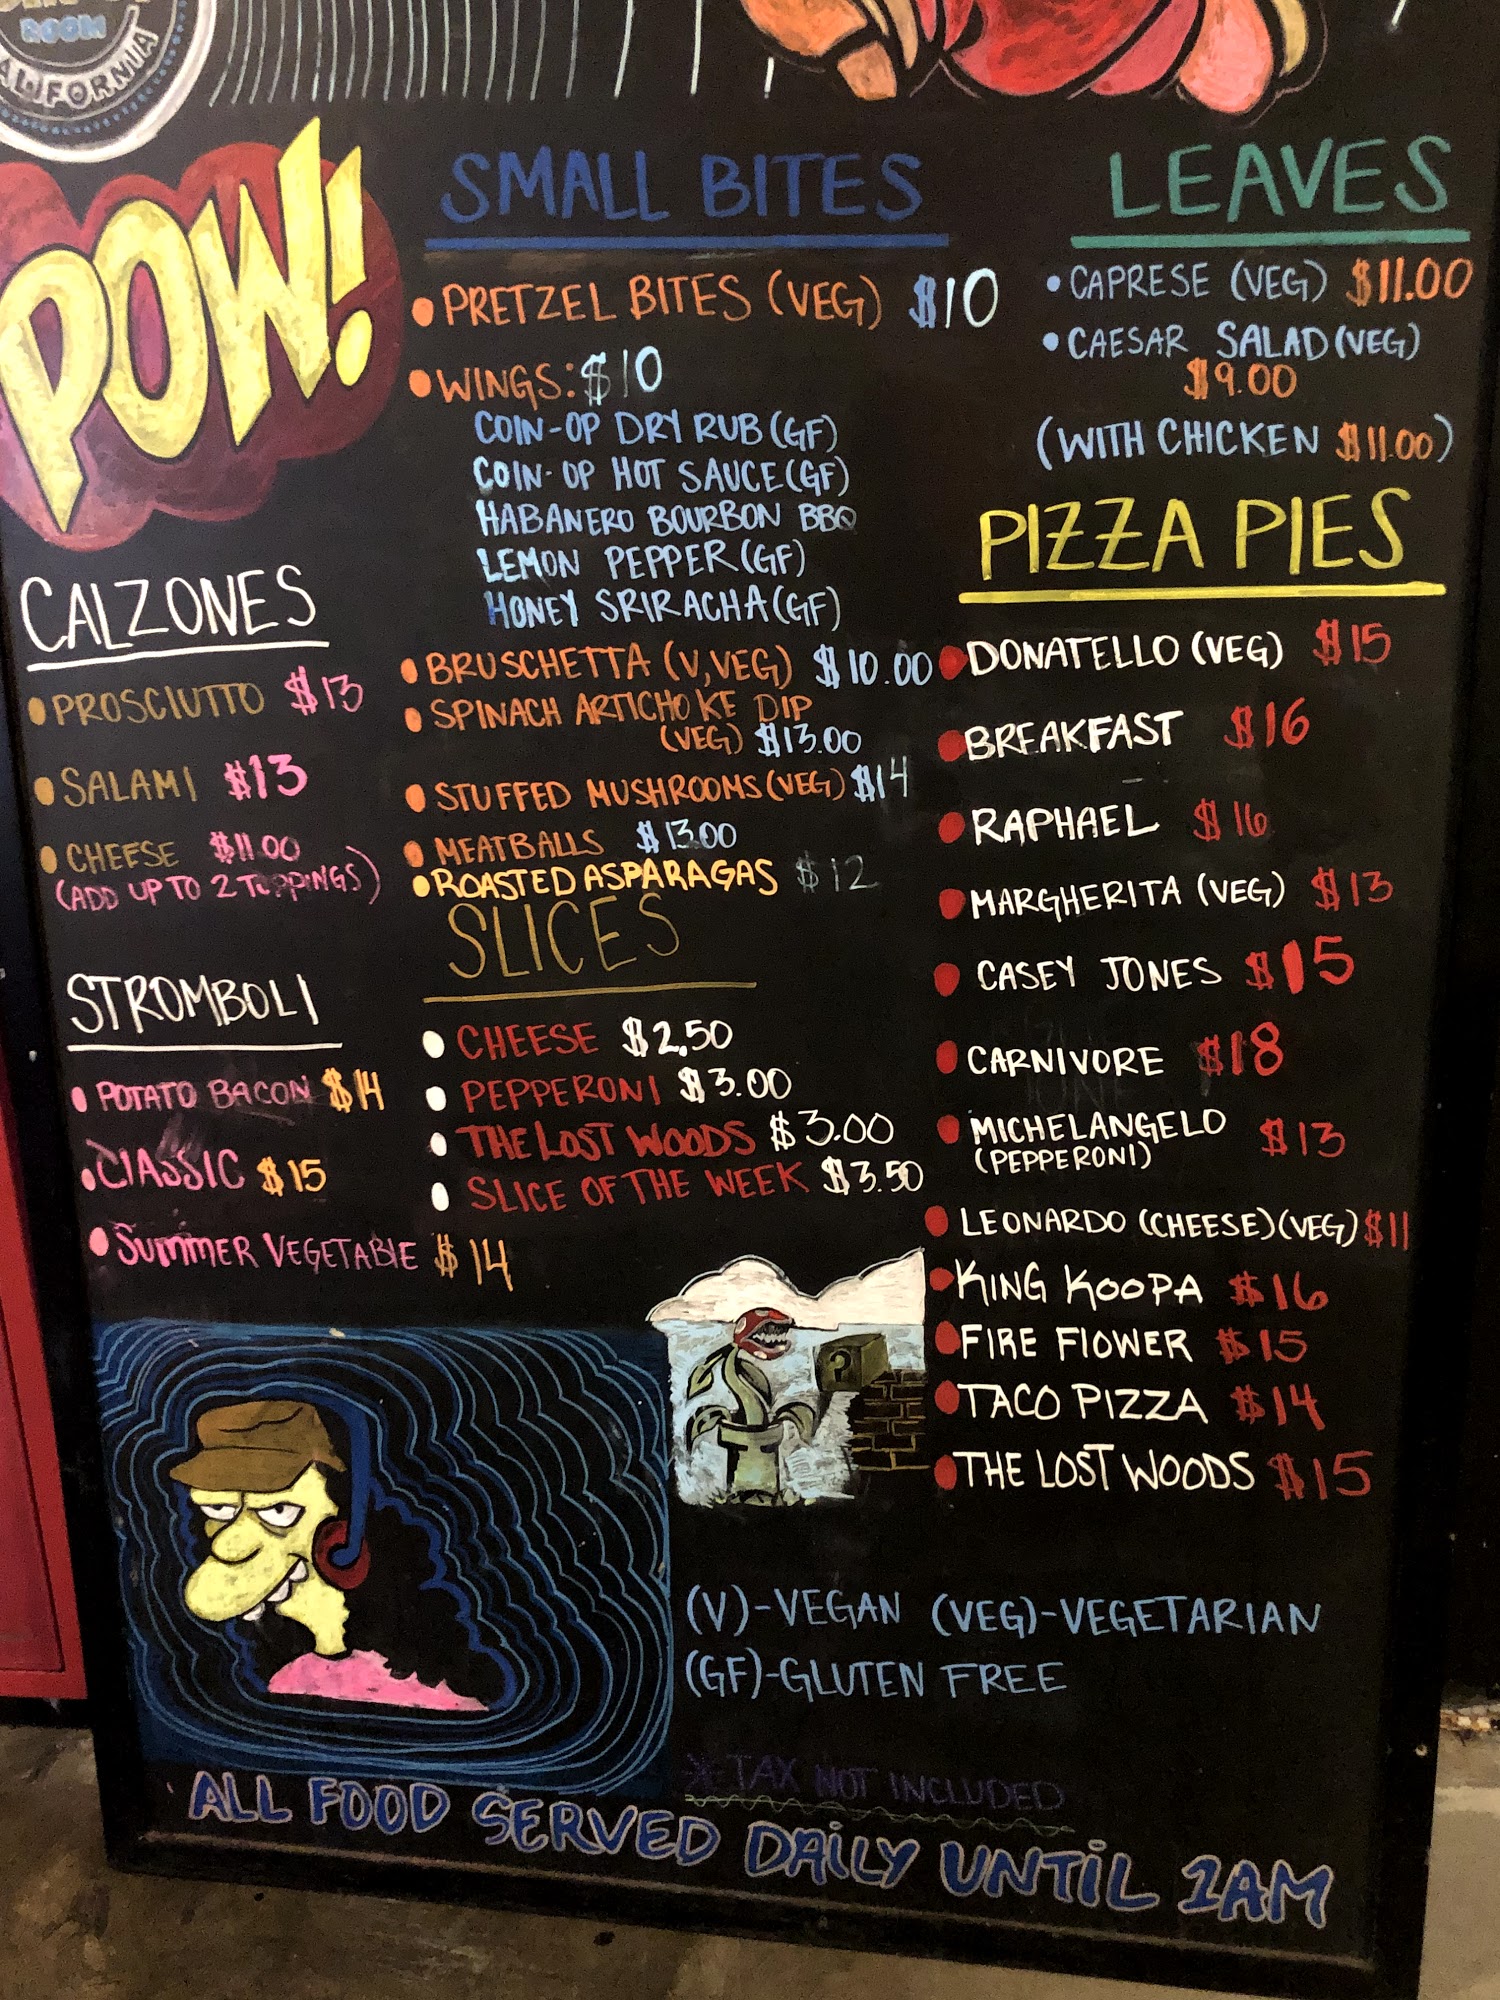 ROOM
CALIFORNIA
POW!
SMALL BITES
• PRETZEL BITES (VEG) $10
• WINGS: $10
COIN-OP DRY RUB (GF)
COIN-OP HOT SAUCE (GF)
HABANERO BOURBON BBQ
LEMON PEPPER (GF)
HONEY SRIRACHA (GF)
• BRUSCHETTA (V, VEG) $10.00
• SPINACH ARTICHOKE DIP
(VEG) $13.00
• STUFFED MUSHROOMS (VEG) $14
• MEATBALLS $13.00
• ROASTED ASPARAGAS $12
LEAVES
• CAPRESE (VEG) $11.00
• CAESAR SALAD (VEG)
$9.00
(WITH CHICKEN $11.00)
CALZONES
• PROSCIUTTO $13
• SALAMI $13
• CHEESE $11.00
(ADD UP TO 2 TOPPINGS)
STROMBOLI
• POTATO BACON $14
• CLASSIC $15
• SUMMER VEGETABLE $14
SLICES
• CHEESE $2.50
• PEPPERONI $3.00
• THE LOST WOODS $3.00
• SLICE OF THE WEEK $3.50
PIZZA PIES
• DONATELLO (VEG) $15
• BREAKFAST $16
• RAPHAEL $16
• MARGHERITA (VEG) $13
• CASEY JONES $15
• CARNIVORE $18
• MICHELANGELO $13
(PEPPERONI)
• LEONARDO (CHEESE) (VEG) $11
• KING KOOPA $16
• FIRE FLOWER $15
• TACO PIZZA $14
• THE LOST WOODS $15
?
(V)-VEGAN (VEG)-VEGETARIAN
(GF)-GLUTEN FREE
*TAX NOT INCLUDED
ALL FOOD SERVED DAILY UNTIL 1AM